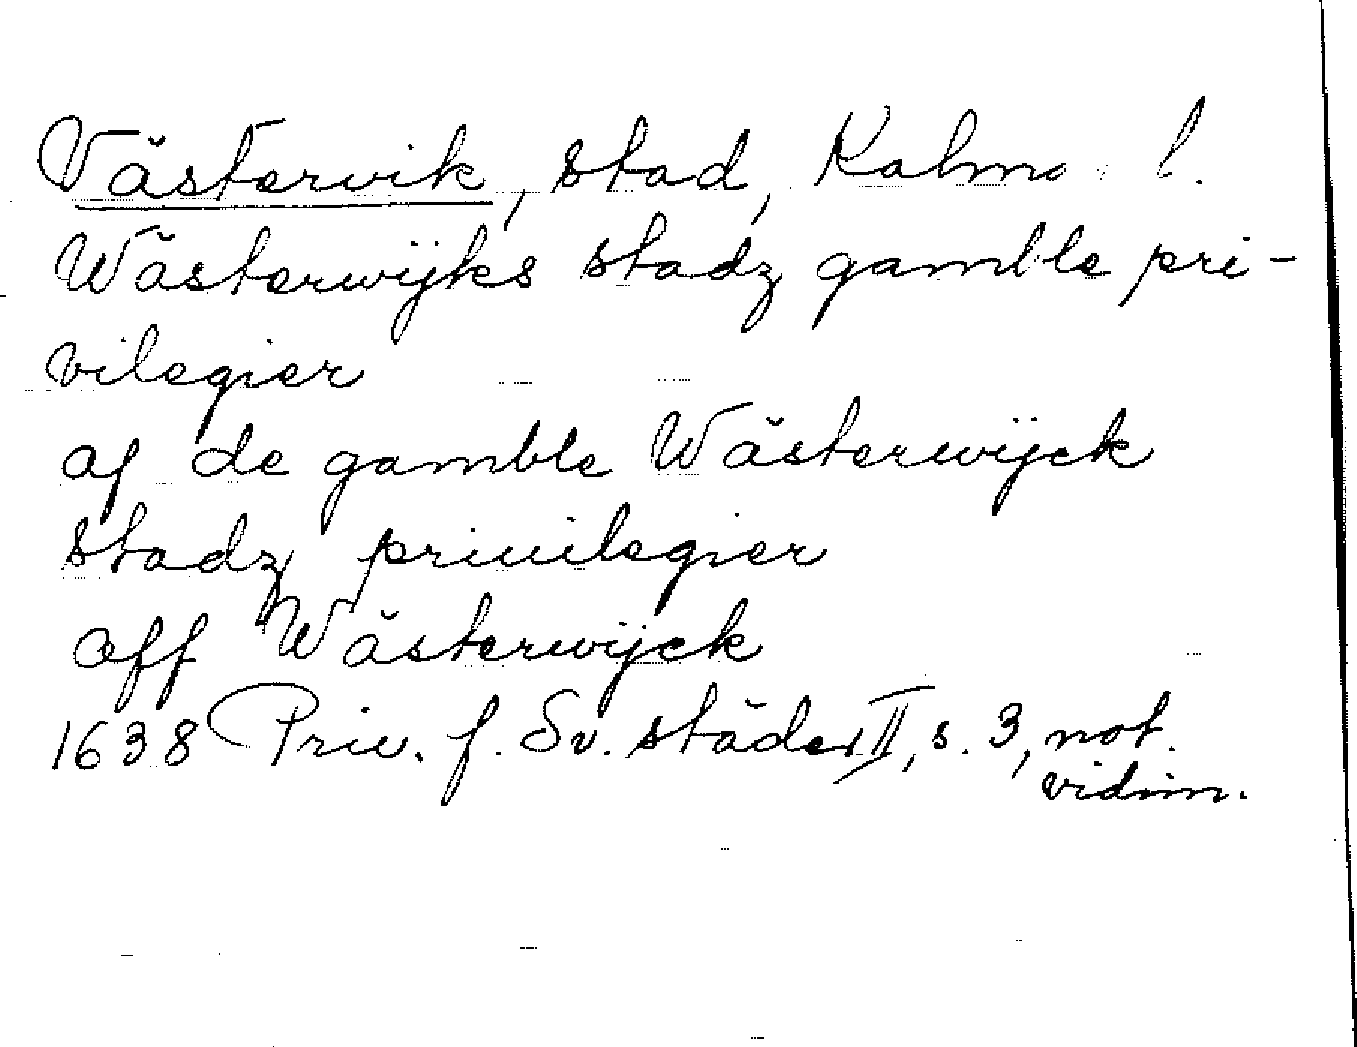 Västervik, stad, Kalmar l.
Wästerwijks stadz gamble pri-
vilegier
af de gamble Wästerwijck
stadz priuilegier
aff Wästerwijck
1638 Priv. f. Sv. städer II, s. 3, not.
vidim.